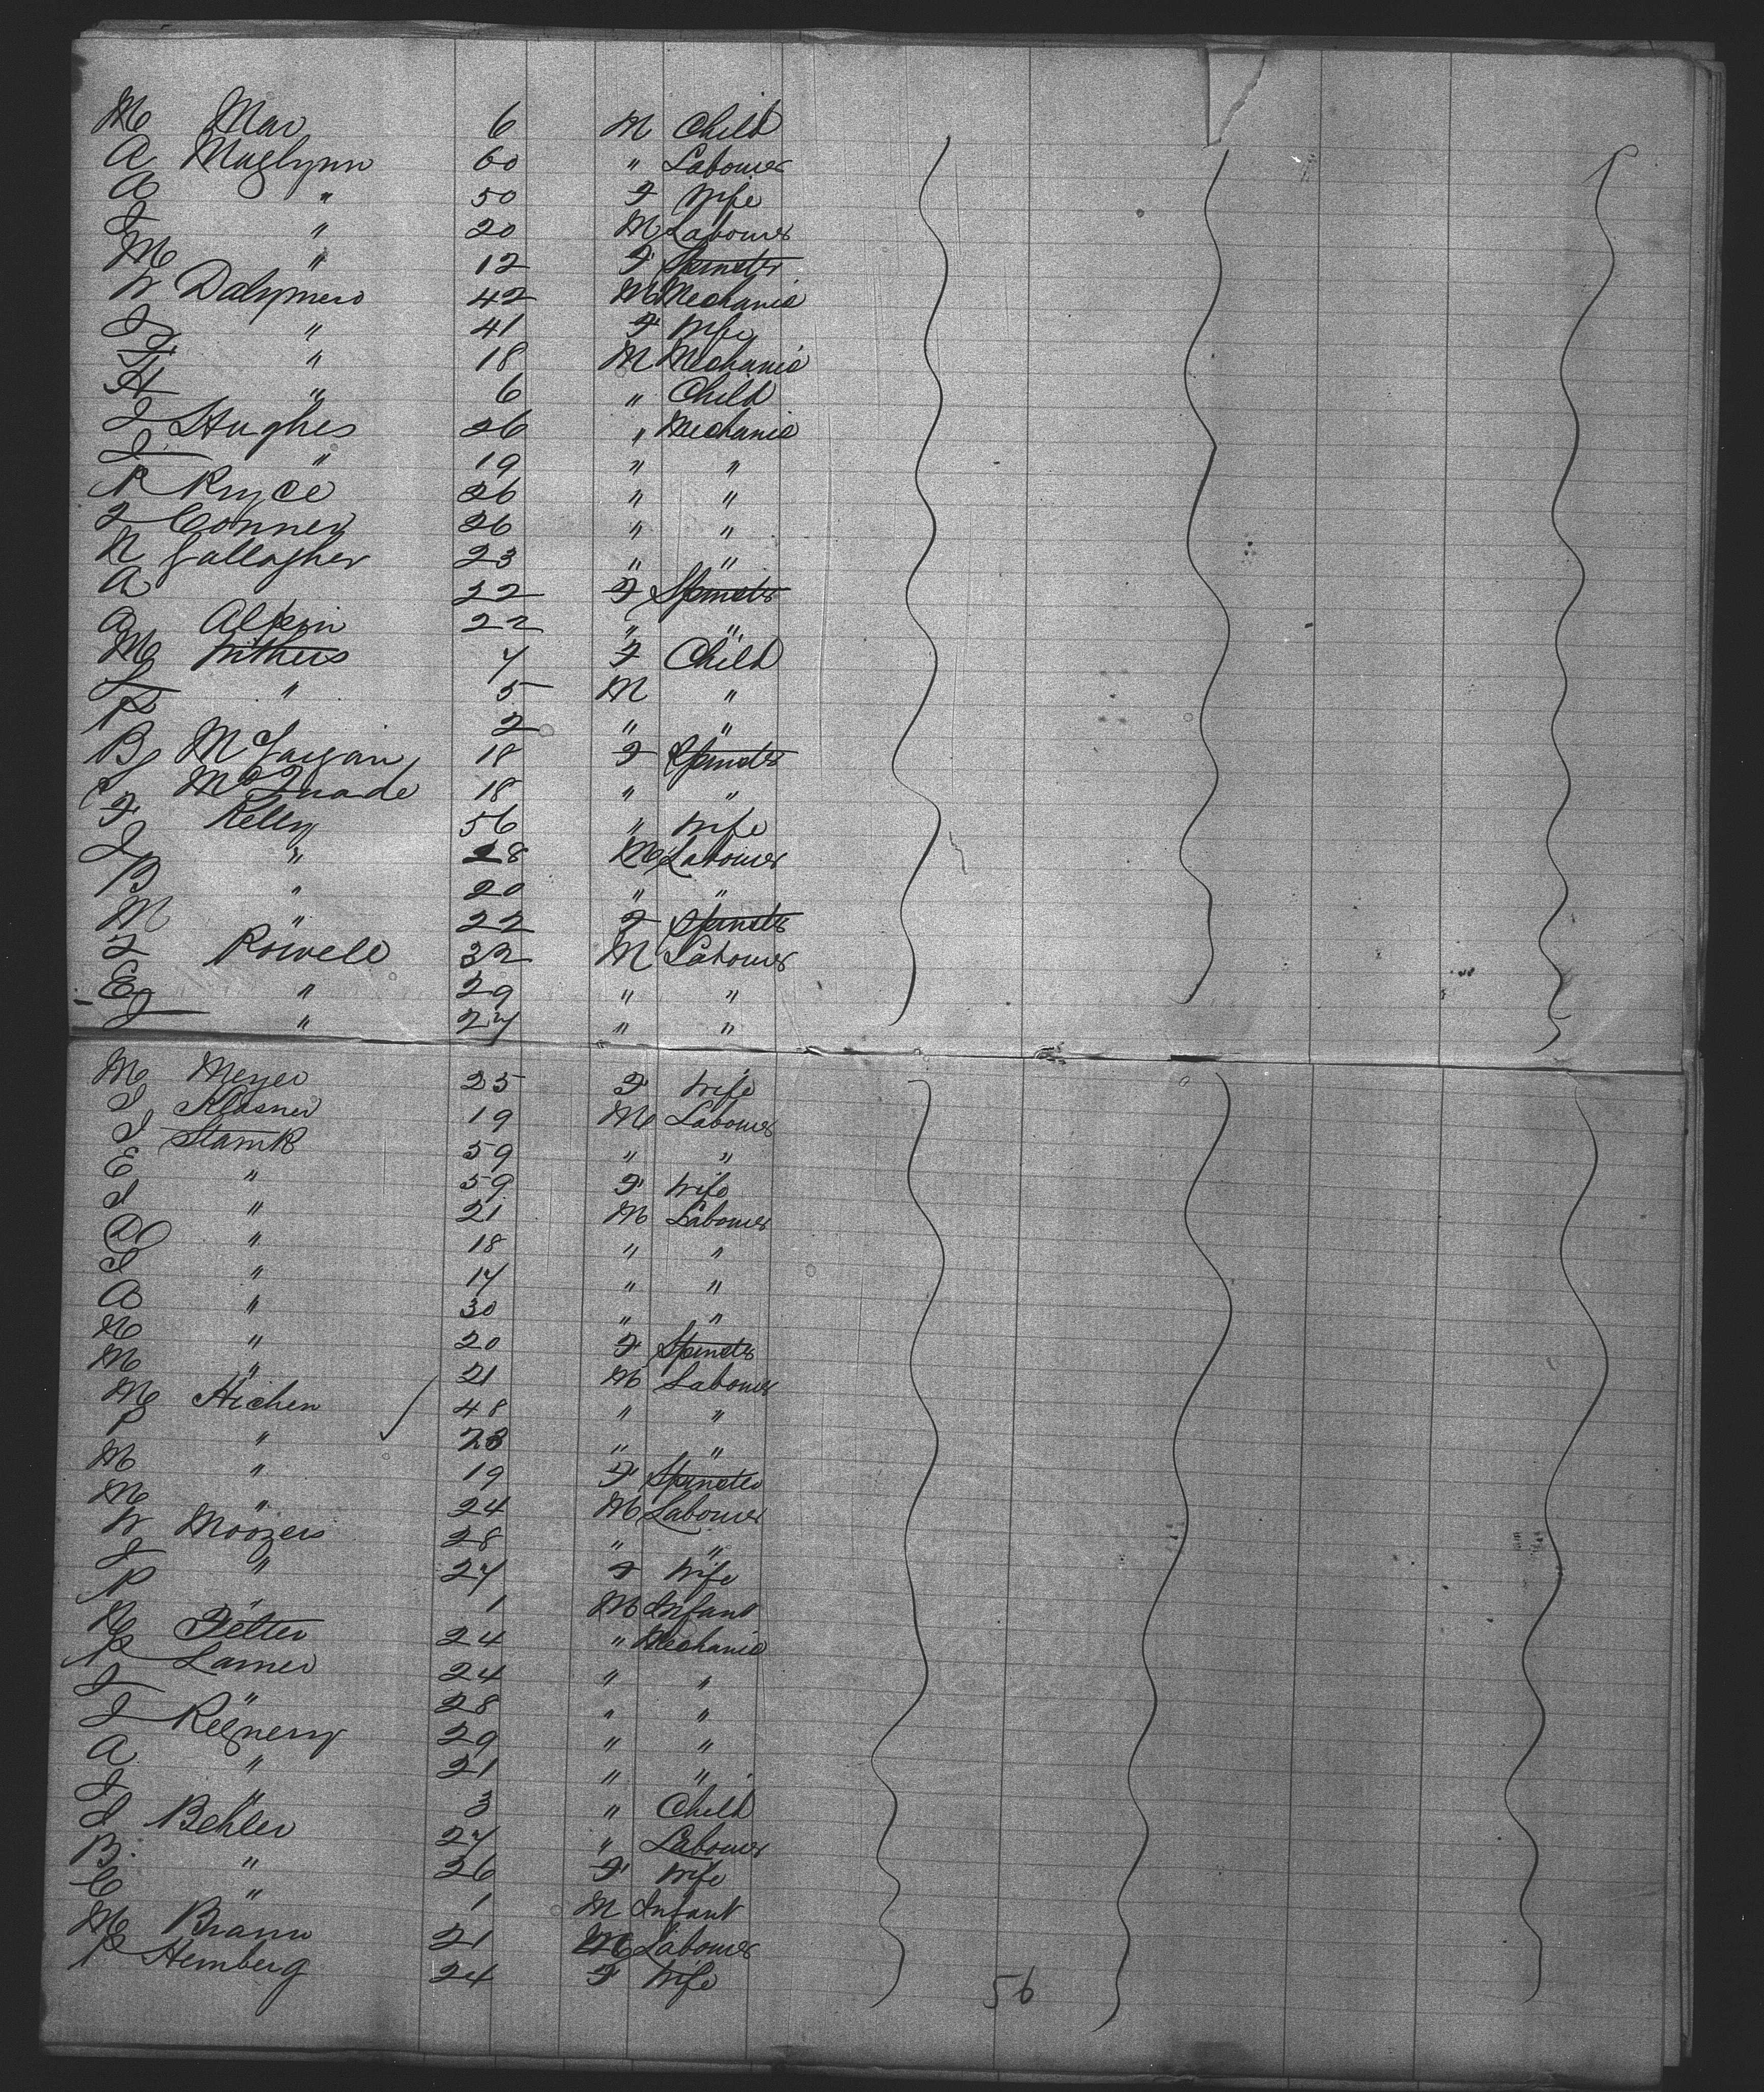 M Mar 6 M Child
A Maglynn 60 " Labourer
A " 50 F Wife
J " 20 M Labourer
M " 12 F Spinster
W Dalymers 42 M Mechanic
J " 41 F Wife
F " 18 M Mechanic
H " 6 " Child
J Hughes 26 " Mechanic
J " 19 " "
R Pryce 26 " "
J Conner 26 " "
N Gallagher 23 " "
A 22 F Spinster
A Alpin 22 " "
M Withers 7 F Child
J " 5 M "
P 2 " "
B 18 F Spinster
S McQuade 18 " "
F Kelly 56 " Wife
J " 28 M Labourer
B " 20 " "
M " 22 F Spinster
J Rowell 32 M Labourer
E " 29 " "
J " 27 " "
M Meyer 25 F Wife
J Klasner 19 M Labourer
J Stamk 59 " "
E " 59 F Wife
J " 21 M Labourer
A " 18 " "
S " 17 " "
A " 30 " "
N " 20 F Spinster
M " 21 M Labourer
M Hichen 48 " "
P " 28 " "
M " 19 F Spinster
M " 24 M Labourer
W Moozers 28 " "
J " 27 F Wife
P " 1 M Infant
N Fetter 24 " Mechanic
P Larner 24 " "
J " 28 " "
J 29 " "
A " 21 " "
J " 3 " Child
J Behler 27 " Labourer
B " 26 F Wife
C " 1 M Infant
M Brann 21 M Labourer
P Hemberg 24 F Wife
56